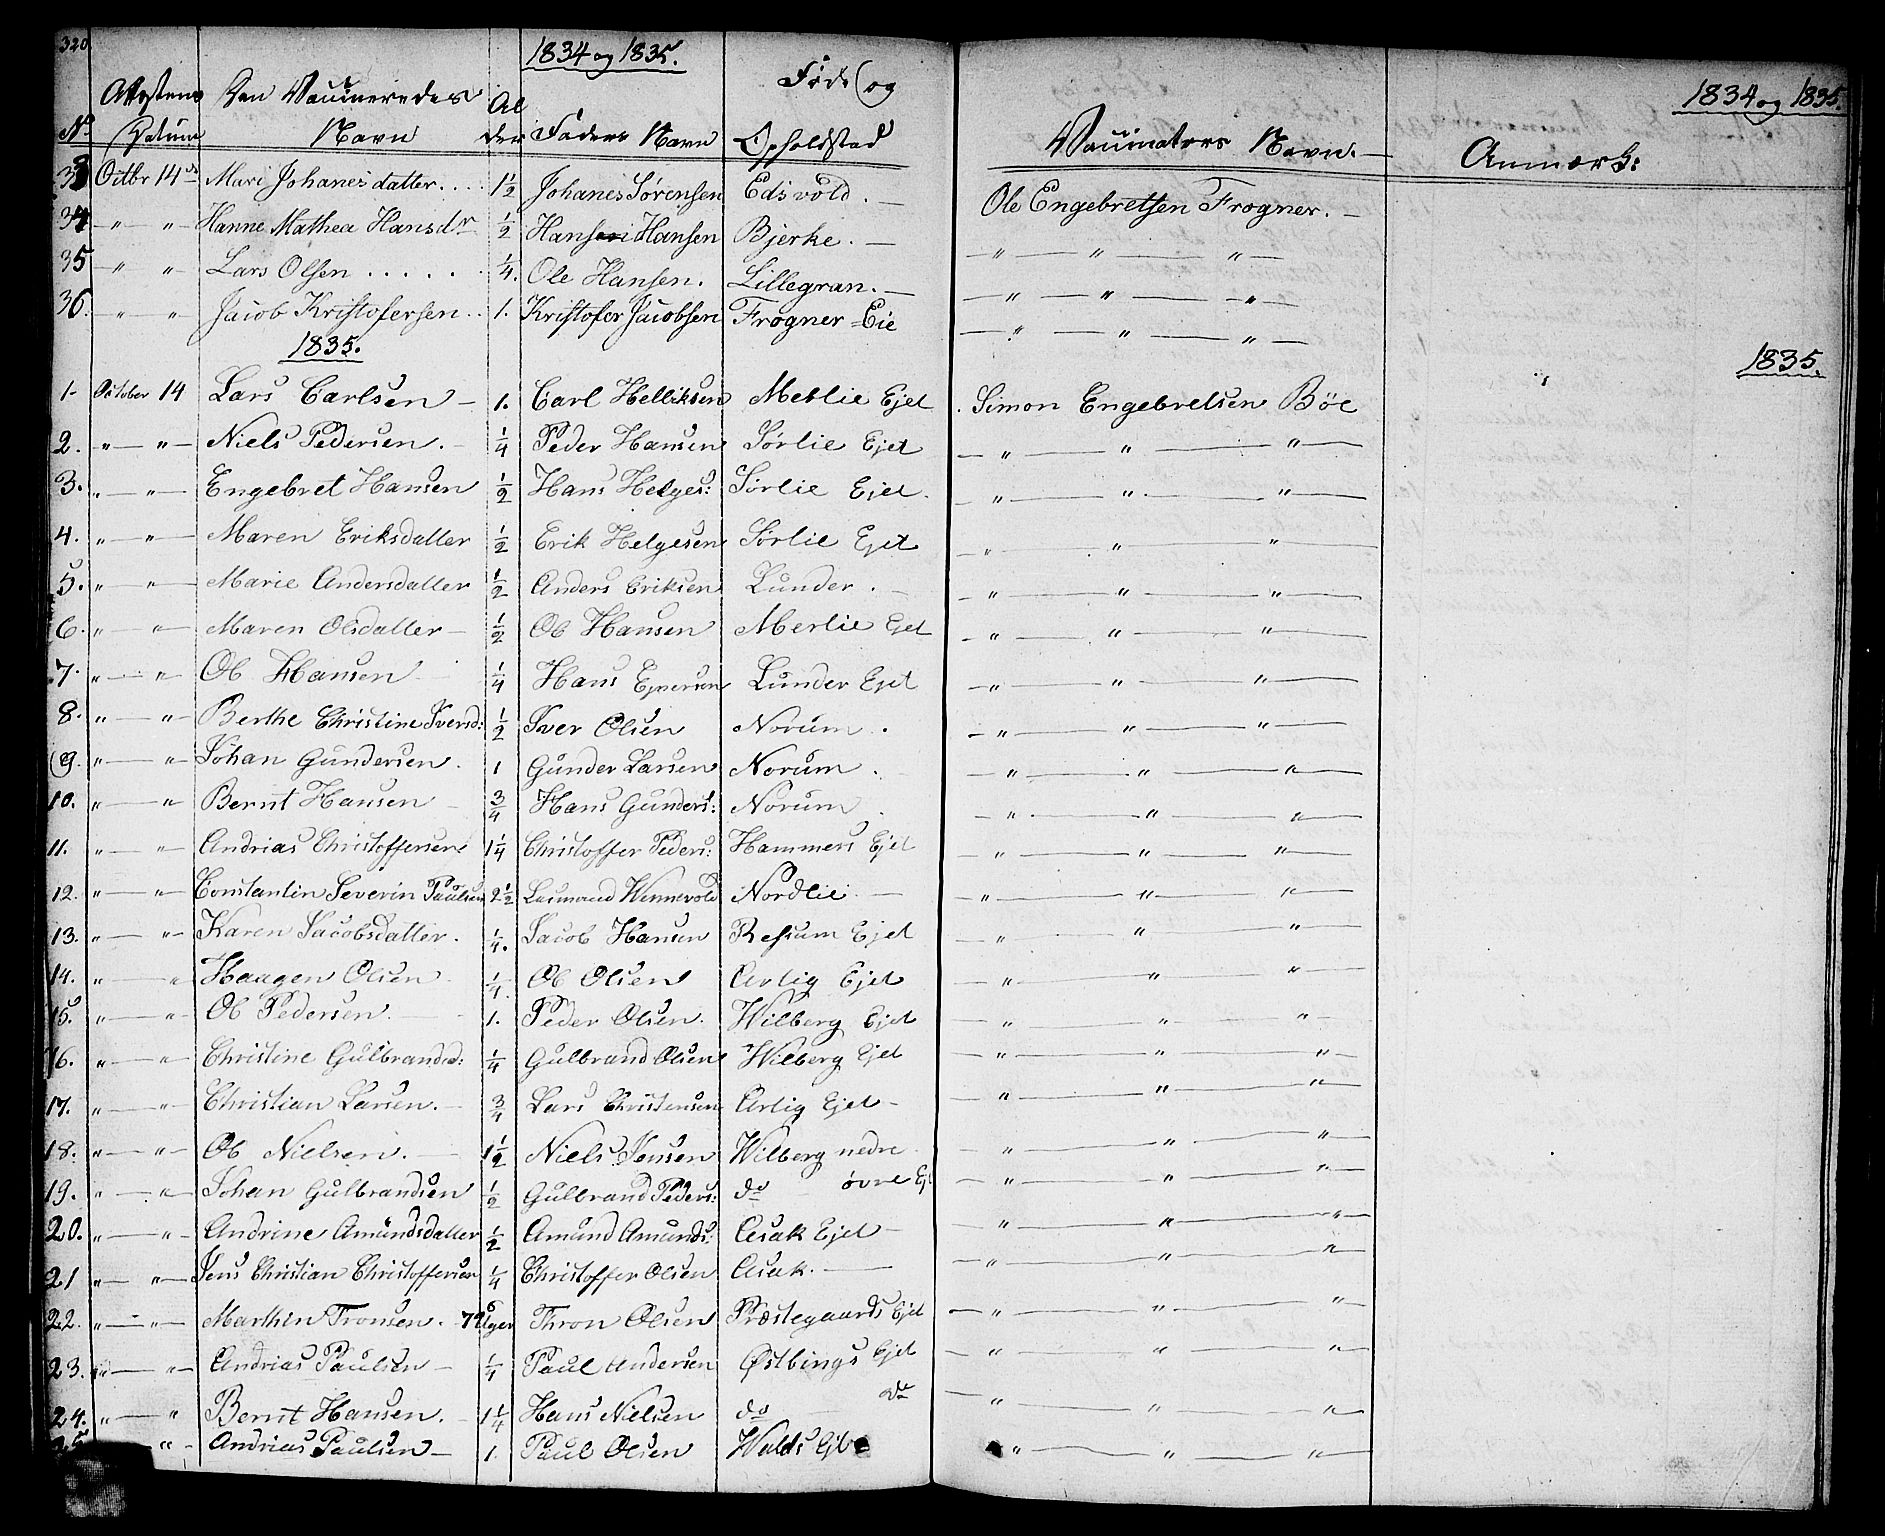 320
1834 og 1835.
1834 og 1835.
No Attestens Datum Den Vaccineredes Navn Alder Faders Navn Føde og Opholdsted Vaccinators Navn. Anmærk:
33 Octbr 14de Mari Johanesdatter.... 1 1/2 Johanes Sørensen Edsvold. Ole Engebretsen Frogner.
34 " " Hanne Mathea Hansdr 1/2 Hans Hansen Bjerke. " " "
35 " " Lars Olsen ...... 1/4. Ole Hansen. Lillegran. " " "
36. " " Jacob Kristofersen.. 1. Kristofer Jacobsen Frogner=Eie " " "
1835. 1835.
1- October 14 Lars Carlsen 1. Carl Helliksen Merlie Ejet Simon Engebretsen Böe
2. " " Niels Pedersen. 1/4 Peder Hansen Sørlie Ejet " " "
3. " " Engebret Hansen 1/2 Hans Helges: Sørlie Ejet. " " "
4. " " Maren Eriksdatter 1/2 Erik Helgesen Sørlie Ejet " " "
5. " " Marie Andersdatter 1/2 Anders Eriksen Lunder. " " "
6. " " Maren Olsdatter 1/2 Ole Hansen Merlie Ejet " " "
7. " " Ole Hansen 1/4 Hans Ejnersen Lunder Ejet " " "
8. " " Berthe Christine Iversd: 1/2 Iver Olsen Norum. " " "
9. " " Johan Gundersen. 1 Gunder Larsen Norum. " " "
10. " " Bernt Hansen 3/4 Hans Gunders: Norum. " " "
11. " " Andrias Christoffersen 1 1/4 Christoffer Peders: Hammers Ejet " " "
12. " " Constantin Severin Paulsen 2 1/2 Wennevold Nordlie " " "
13. " " Karen Jacobsdatter. 1/4. Jacob Hansen Refsum Ejet " " "
14. " " Haagen Olsen 1/4. Ole Olsen Arlig Ejet " " "
15. " " Ole Pedersen. 1. Peder Olsen. Wilberg Ejet " " "
16. " " Christine Gulbrandsd: 1/4 Gulbrand Olsen Wilberg Ejet " " "
17. " " Christian Larsen. 3/4 Lars Christensen Arlig Ejet " " "
18. " " Ole Nielsen. 1 1/2 Niels Jensen Wilberg nedre " " "
19. " " Johan Gulbrandsen 1/2 Gulbrand Peders: do øvre Ej " " "
20. " " Andrine Amundsdatter 1/2 Amund Amunds: Asak Ejet " " "
21 " " Jens Christian Christoffersen 1/4 Christoffer Olsen Asak. " " "
22. " " Marthin Tronsen. 7 Uger Thron Olsen Præstegaards Ejet " " "
23. " " Andrias Paulsen 1/4 Paul Andersen Østbings Ejet " " "
24. " " Bernt Hansen. 1 1/4 Hans Nielsen do do " " "
25 " Andrias Paulsen 1. Paul Olsen Walds Ejet " " "